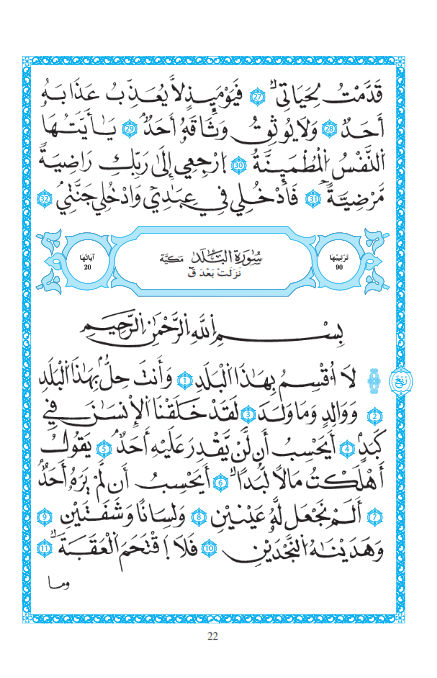 قَدَّمْتُ لِحَيَاتِي 27 فَيَوْمَئِذٍ لَّا يُعَذِّبُ عَذَابَهُ
أَحَدٌ 28 وَلَا يُوثِقُ وَثَاقَهُ أَحَدٌ 29 يَا أَيَّتُهَا
اَلنَّفْسُ الْمُطْمَئِنَّةُ 30 اِرْجِعِي إِلَىٰ رَبِّكِ رَاضِيَةً
مَّرْضِيَّةً 31 فَادْخُلِي فِي عِبَٰدِي وَادْخُلِي جَنَّتِي 32
ترتيبها
90
سُورَةُ الْبَلَدِ مَكِّيَّة
نَزَلَتْ بَعْدَ قٓ
آياتها
20
بِسْمِ اللَّهِ الرَّحْمَٰنِ الرَّحِيمِ
لَا أُقْسِمُ بِهَٰذَا الْبَلَدِ 1 وَأَنتَ حِلٌّ بِهَٰذَا الْبَلَدِ
ربع
2 وَوَالِدٍ وَمَا وَلَدَ 3 لَقَدْ خَلَقْنَا الْإِنسَٰنَ فِي
كَبَدٍ 4 أَيَحْسِبُ أَن لَّن يَّقْدِرَ عَلَيْهِ أَحَدٌ 5 يَقُولُ
أَهْلَكْتُ مَالًا لُّبَدًا 6 أَيَحْسِبُ أَن لَّمْ يَرَهُ أَحَدٌ
7 أَلَمْ نَجْعَل لَّهُ عَيْنَيْنِ 8 وَلِسَانًا وَشَفَتَيْنِ 9
وَهَدَيْنَٰهُ النَّجْدَيْنِ 10 فَلَا اَقْتَحَمَ الْعَقَبَةَ 11
وما
22